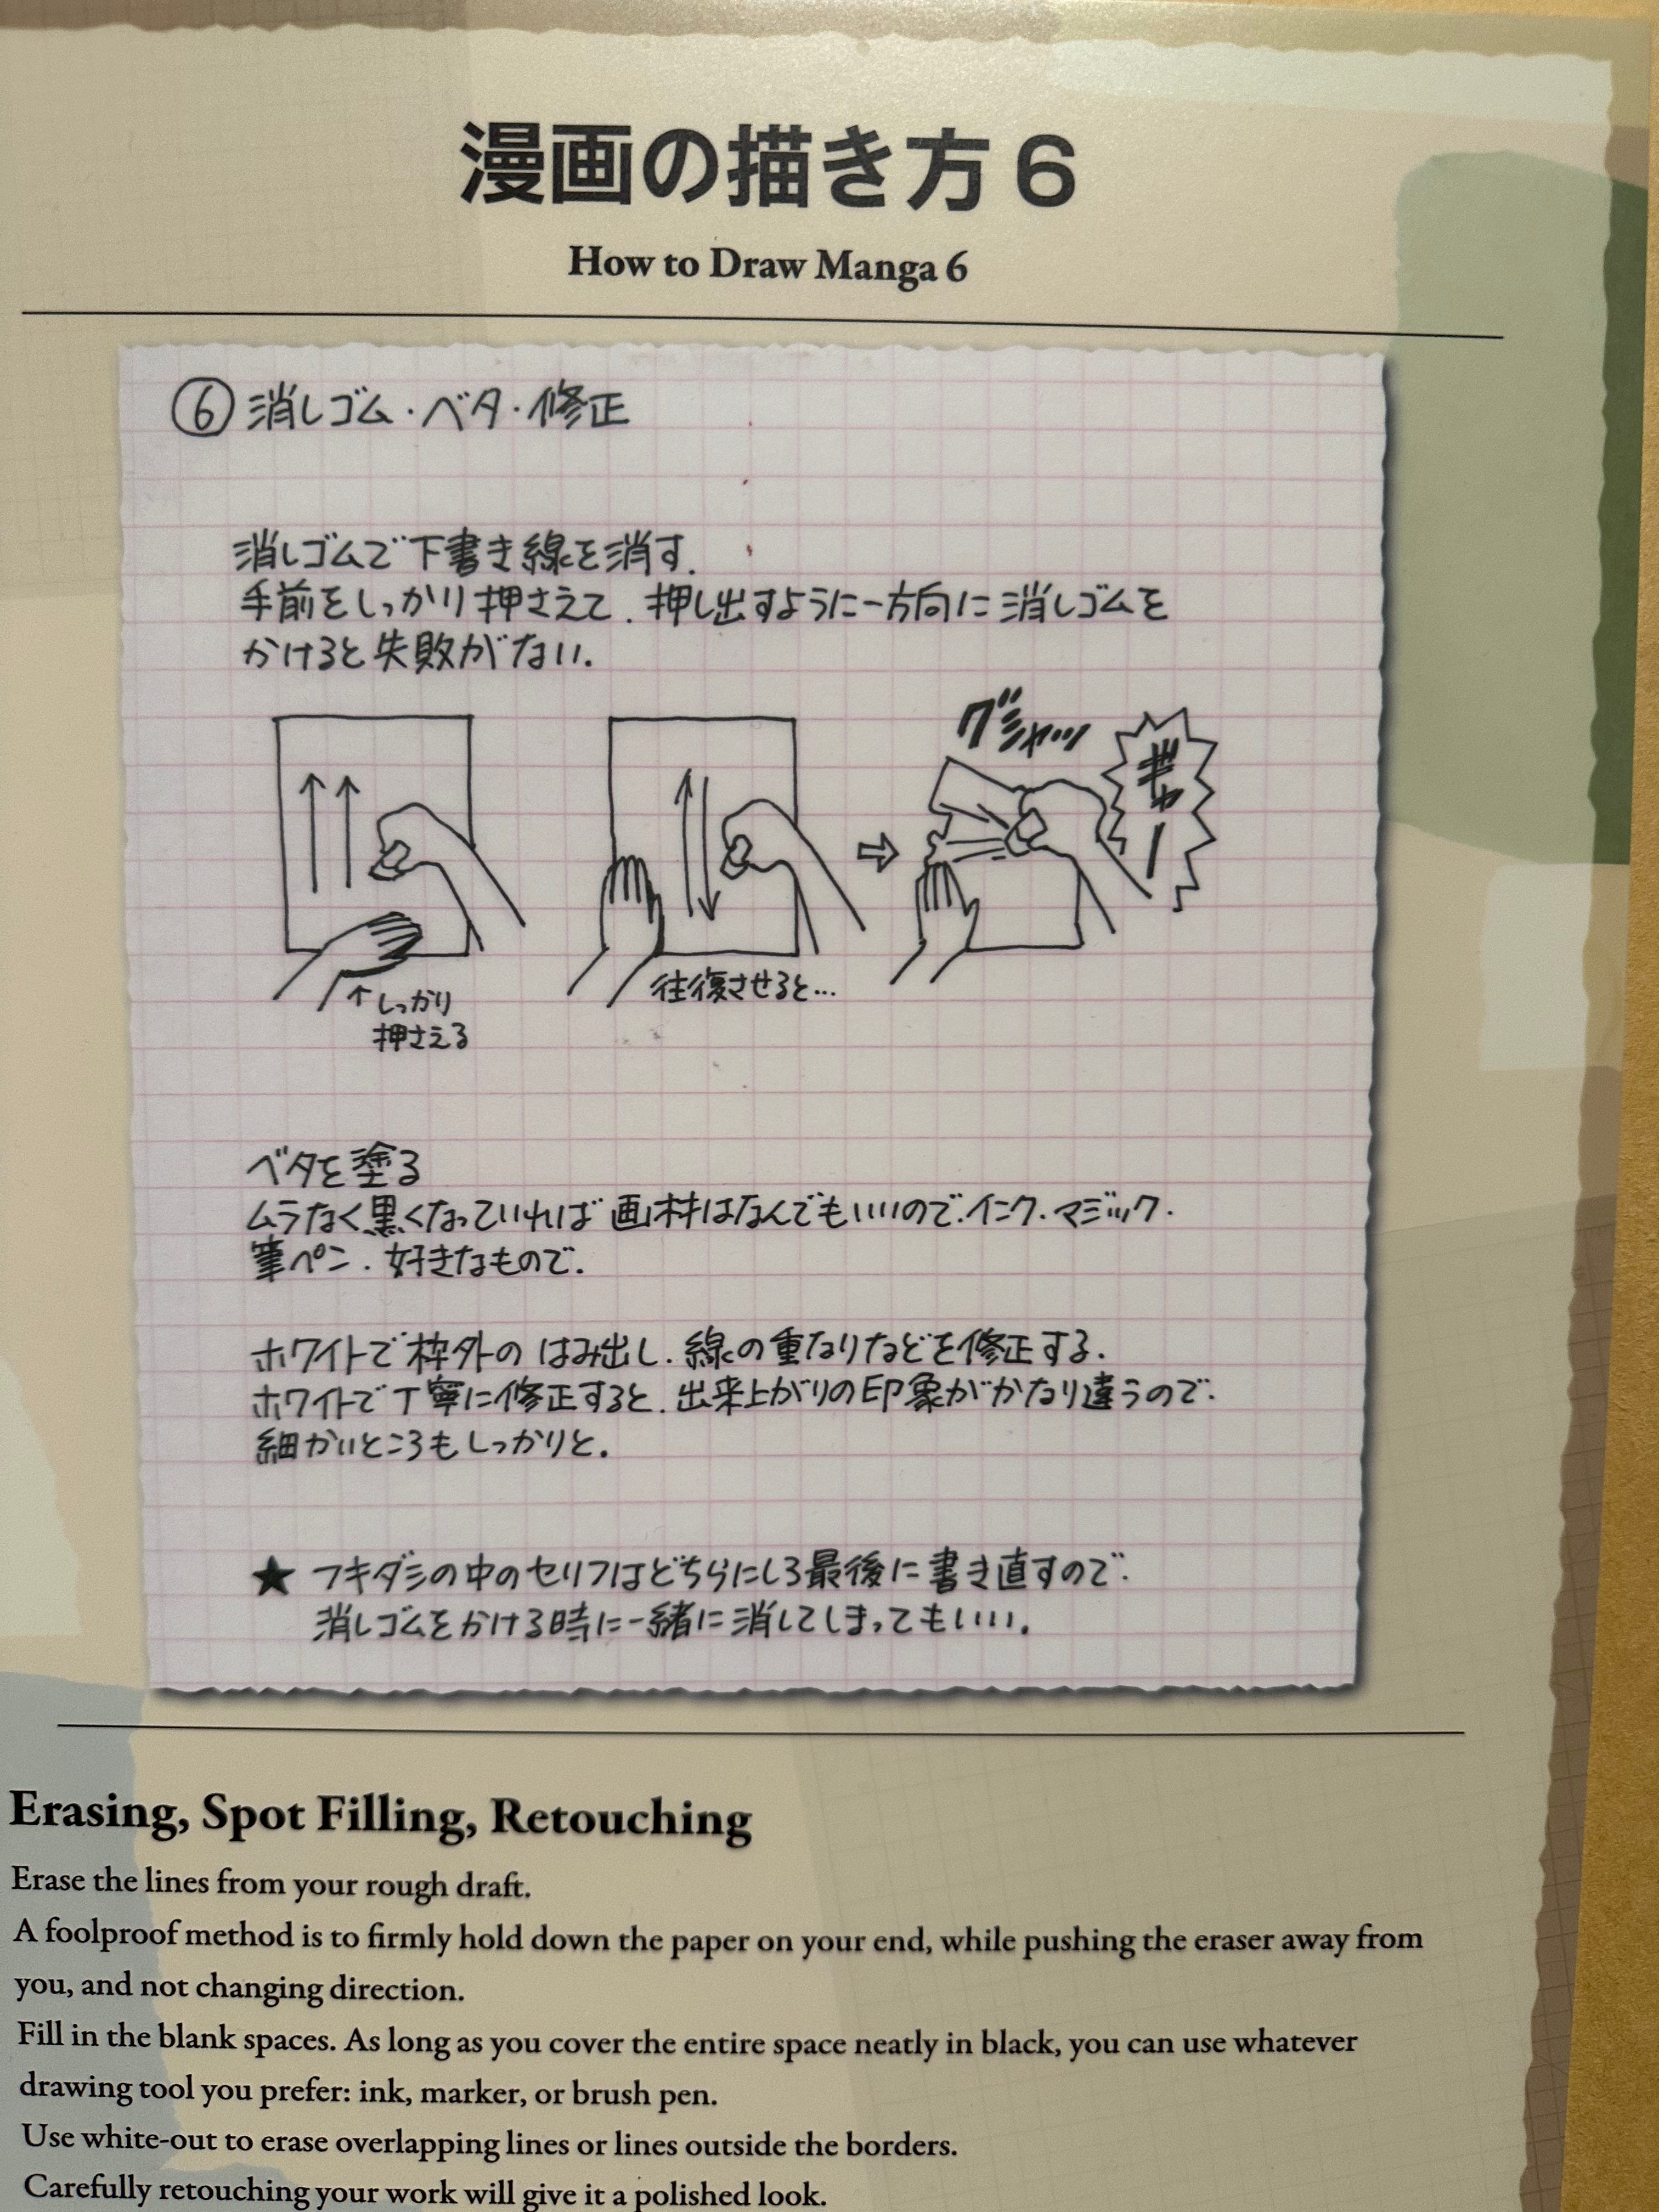 漫画の描き方6
How to Draw Manga 6
⑥消しゴム・ベタ・修正
消しゴムで下書き線を消す.
手前をしっかり押さえて、押し出すように一方向に消しゴムを
かけると失敗がない.
グシャッ
ギャー
↑しっかり
押さえる
往復させると…
ベタを塗る
ムラなく黒くなっていれば画材はなんでもいいので、インク、マジック、
筆ペン、好きなもので.
ホワイトで枠外のはみ出し、線の重なりなどを修正する.
ホワイトで丁寧に修正すると、出来上がりの印象がかなり違うので、
細かいところもしっかりと.
★ フキダシの中のセリフはどちらにしろ最後に書き直すので、
消しゴムをかける時に一緒に消してしまってもいい.
Erasing, Spot Filling, Retouching
Erase the lines from your rough draft.
A foolproof method is to firmly hold down the paper on your end, while pushing the eraser away from
you, and not changing direction.
Fill in the blank spaces. As long as you cover the entire space neatly in black, you can use whatever
drawing tool you prefer: ink, marker, or brush pen.
Use white-out to erase overlapping lines or lines outside the borders.
Carefully retouching your work will give it a polished look.